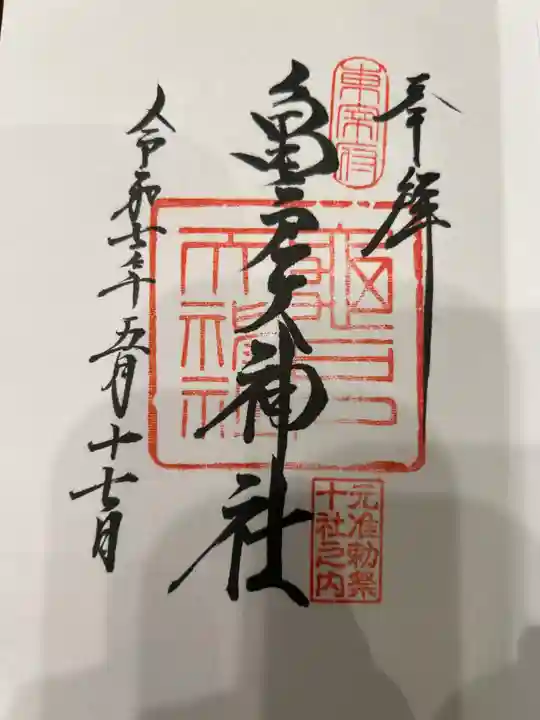 奉拝
東宰府
亀戸天神社
元准勅祭
十社之内
令和七年五月十七日